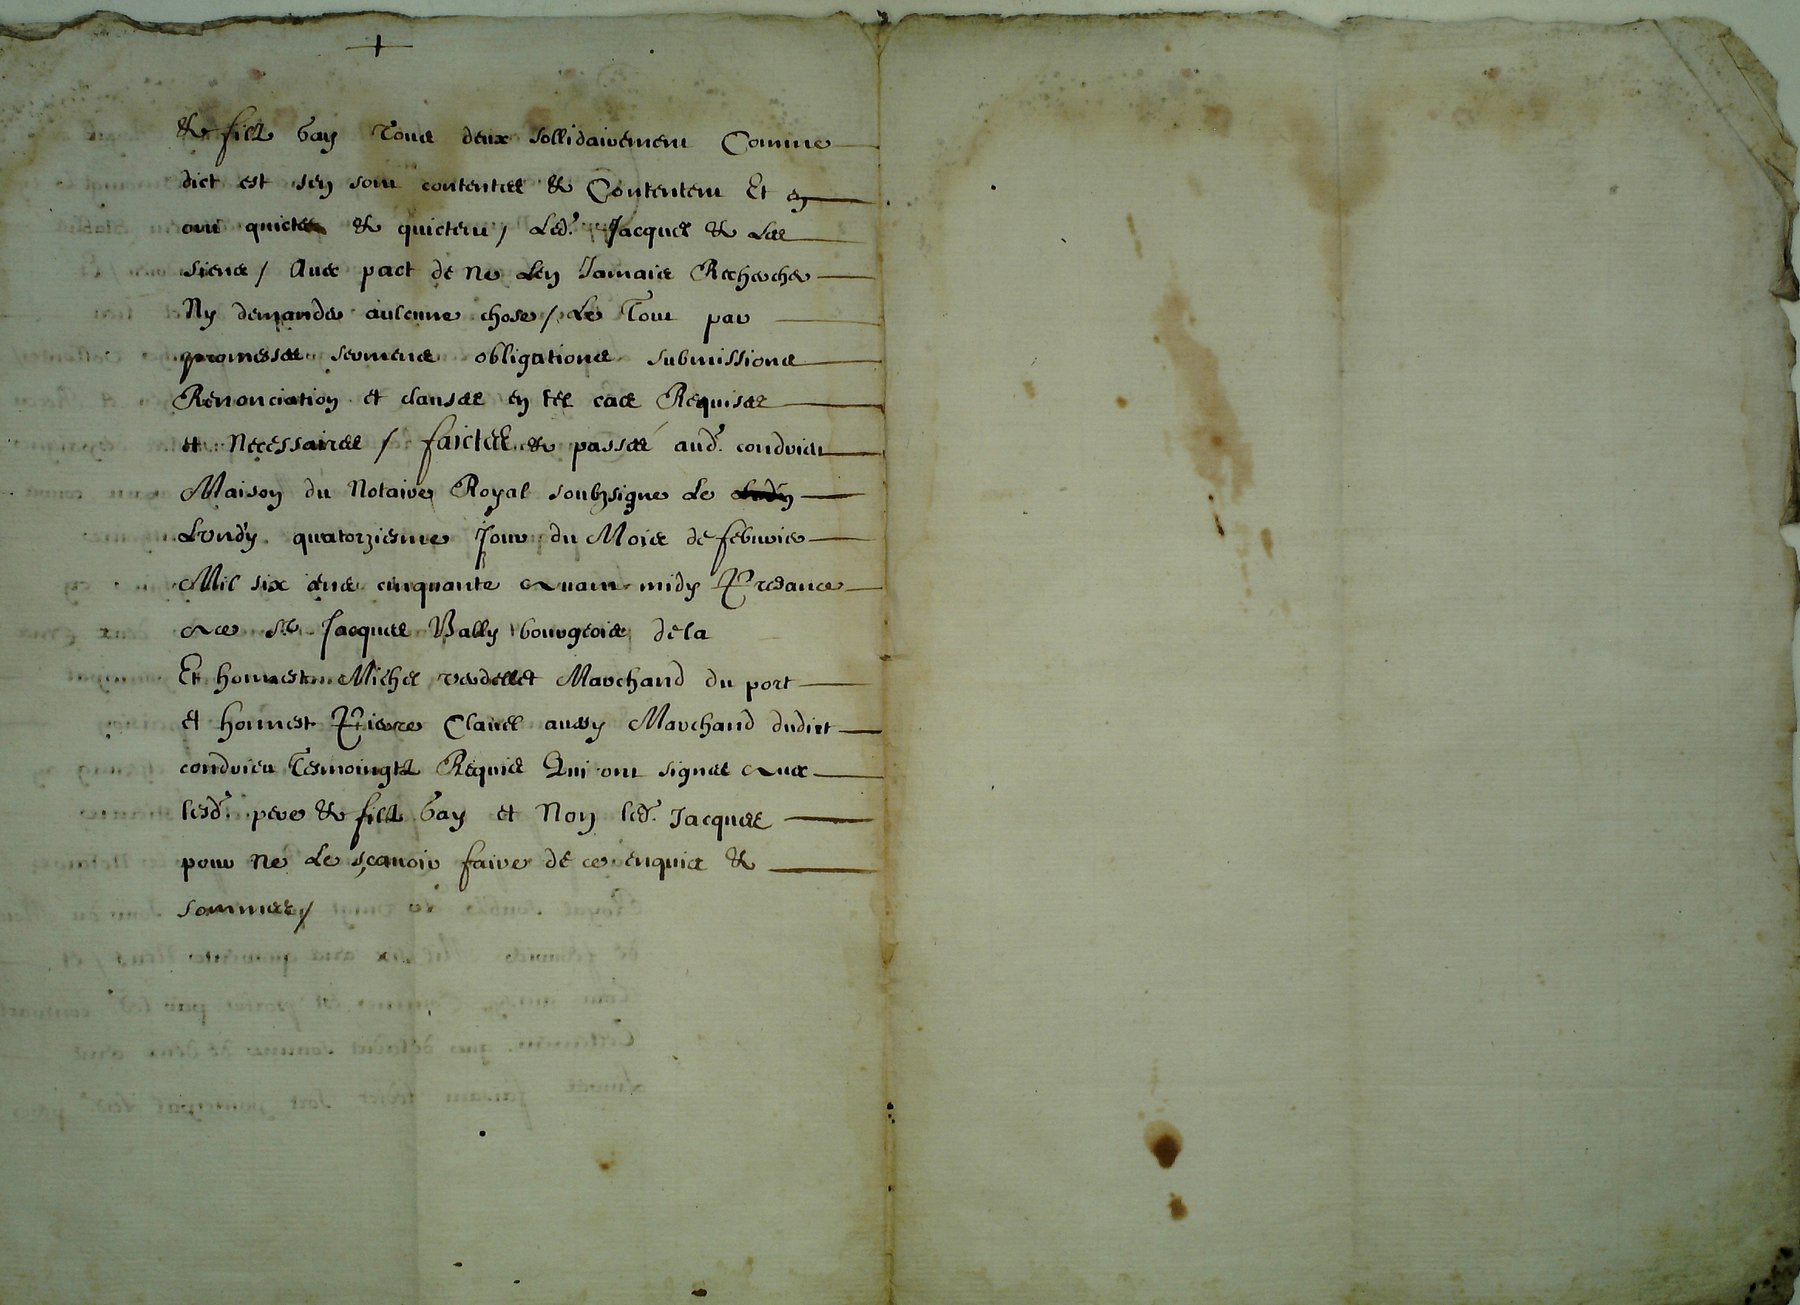 & filz Gay Tous deux sollidairement Comme
dict est sen sont contentes & Contentent Et en
ont quicte & quictent / Led. Jacques & Les
siens / Avec pact de ne Len Jamais Rechercher
Ny demander aulcune chose / Le Tout par
promesses sermens obligations submissions
Renonciation et clauses en tel cas Requises
et Necessaires / faictes & passés aud. condrieu
Maison du Notaire Royal soubzsigne Le
Lundy quatorziesme Jour du Mois de febvrier
Mil six cens cinquante Avant midy Presance
de Sr. Jacques Bally bourgeois dela
Et honneste Michel verdellet Marchand du port
et honnest Pierre Clavel aussy Marchand dudict
condrieu Tesmoingtz Requis Qui ont signes Avec
lesd. pere & filz Gay et Non led. Jacques
pour ne Le sçavoir faire de ce enquis &
sommes /